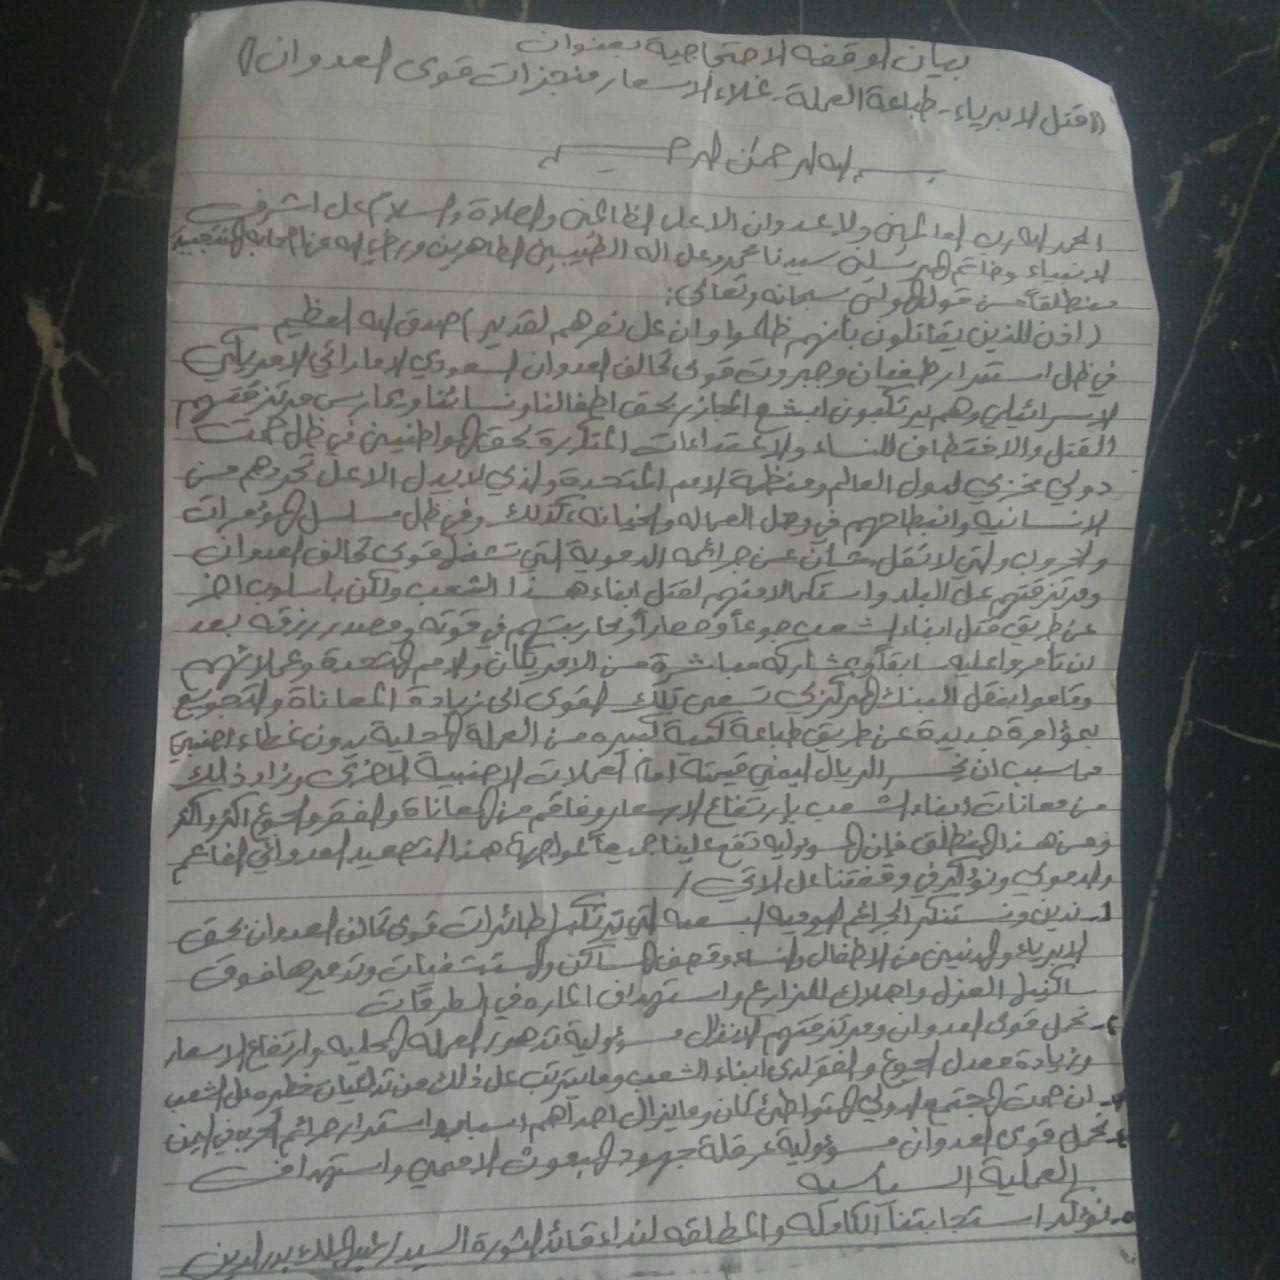 بيان الوقفه الاحتجاجية بعنوان
((قتل الابرياء - طباعة العملة - غلاء الاسعار منجزات قوى العدوان))
بسم الله الرحمن الرحيم
الحمد لله رب العالمين ولا عدوان الا على الظالمين والصلاة والسلام على اشرف
الانبياء وخاتم المرسلين سيدنا محمد وعلى اله الطيبين الطاهرين ورضي الله عن اصحابه المنتجبين
منطلقاً من قوله المولى سبحانه وتعالى:
(اذن للذين يقاتلون بأنهم ظلموا وان على نصرهم لقدير) صدق الله العظيم
في ظل استمرار طغيان وجبروت قوى تحالف العدوان السعودي الاماراتي الامريكي
الاسرائيلي وهم يرتكبون ابشع المجازر بحق اطفالنا ونسائنا ويمارس مرتزقتهم
القتل والاختطاف للنساء والاعتداءات المتكررة بحق المواطنين في ظل صمت
دولي مخزي لدول العالم ومنظمة الامم المتحدة والذي لا يدل الا على تجردهم من
الانسانيه وانبطاحهم في وحل العماله والخيانه، كذلك وفي ظل مسلسل المؤمرات
والحروب والتي لا تقل شأن عن جرائمه الدموية التي تشنها قوى تحالف العدوان
ومرتزقتهم على البلد واستكمالا منهم لقتل ابناء هذا الشعب ولكن باسلوب اخر
عن طريق قتل ابناء الشعب جوعاً وحصاراً ومحاربتهم في قوته ومصدر رزقه بعد
ان تأمروا عليه سابقاً وبمشاركه مباشرة من الامريكان والامم المتحدة وعملائهم
وقاموا بنقل البنك المركزي تسعى تلك القوى الى زيادة المعاناة والتجويع
بمؤامرة جديدة عن طريق طباعة كمية كبيره من العملة المحلية بدون غطاء اجنبي
مما سبب ان يخسر الريال اليمني قيمته امام العملات الاجنبية الاخرى وزاد ذلك
من معانات ابناء الشعب بإرتفاع الاسعار وفاقم من المعاناة والفقر والجوع اكثر واكثر
ومن هذا المنطلق فإن المسؤوليه تقع علينا جميعاً لمواجهة هذا التصعيد العدواني الغاشم
والدموي ونؤكد في وقفتنا على الاتي /
١- ندين ونستنكر الجرائم اليوميه البشعه التي ترتكبها طائرات قوى تحالف العدوان بحق
الابرياء والمدنيين من الاطفال والنساء وقصف المساكن والمستشفيات وتدميرها فوق
ساكنيها العزل واهلاك للمزارع واستهداف الماره في الطرقات
٢- نحمل قوى العدوان ومرتزقتهم الانذال مسؤولية تدهور العمله المحليه وارتفاع الاسعار
وزيادة معدل الجوع والفقر لدى أبناء الشعب وما يترتب على ذلك من تداعيات خطيره على الشعب
٣- ان صمت المجتمع الدولي المتواطئ كان وما يزال احد أهم اسباب استمرار جرائم الحرب في اليمن
٤- نحمل قوى العدوان مسؤولية عرقلة جهود المبعوث الاممي واستهداف
العملية السياسيه
٥- نؤكد استجابتنا الكامله والمطلقه لنداء قائد الثورة السيد / عبدالملك بدرالدين